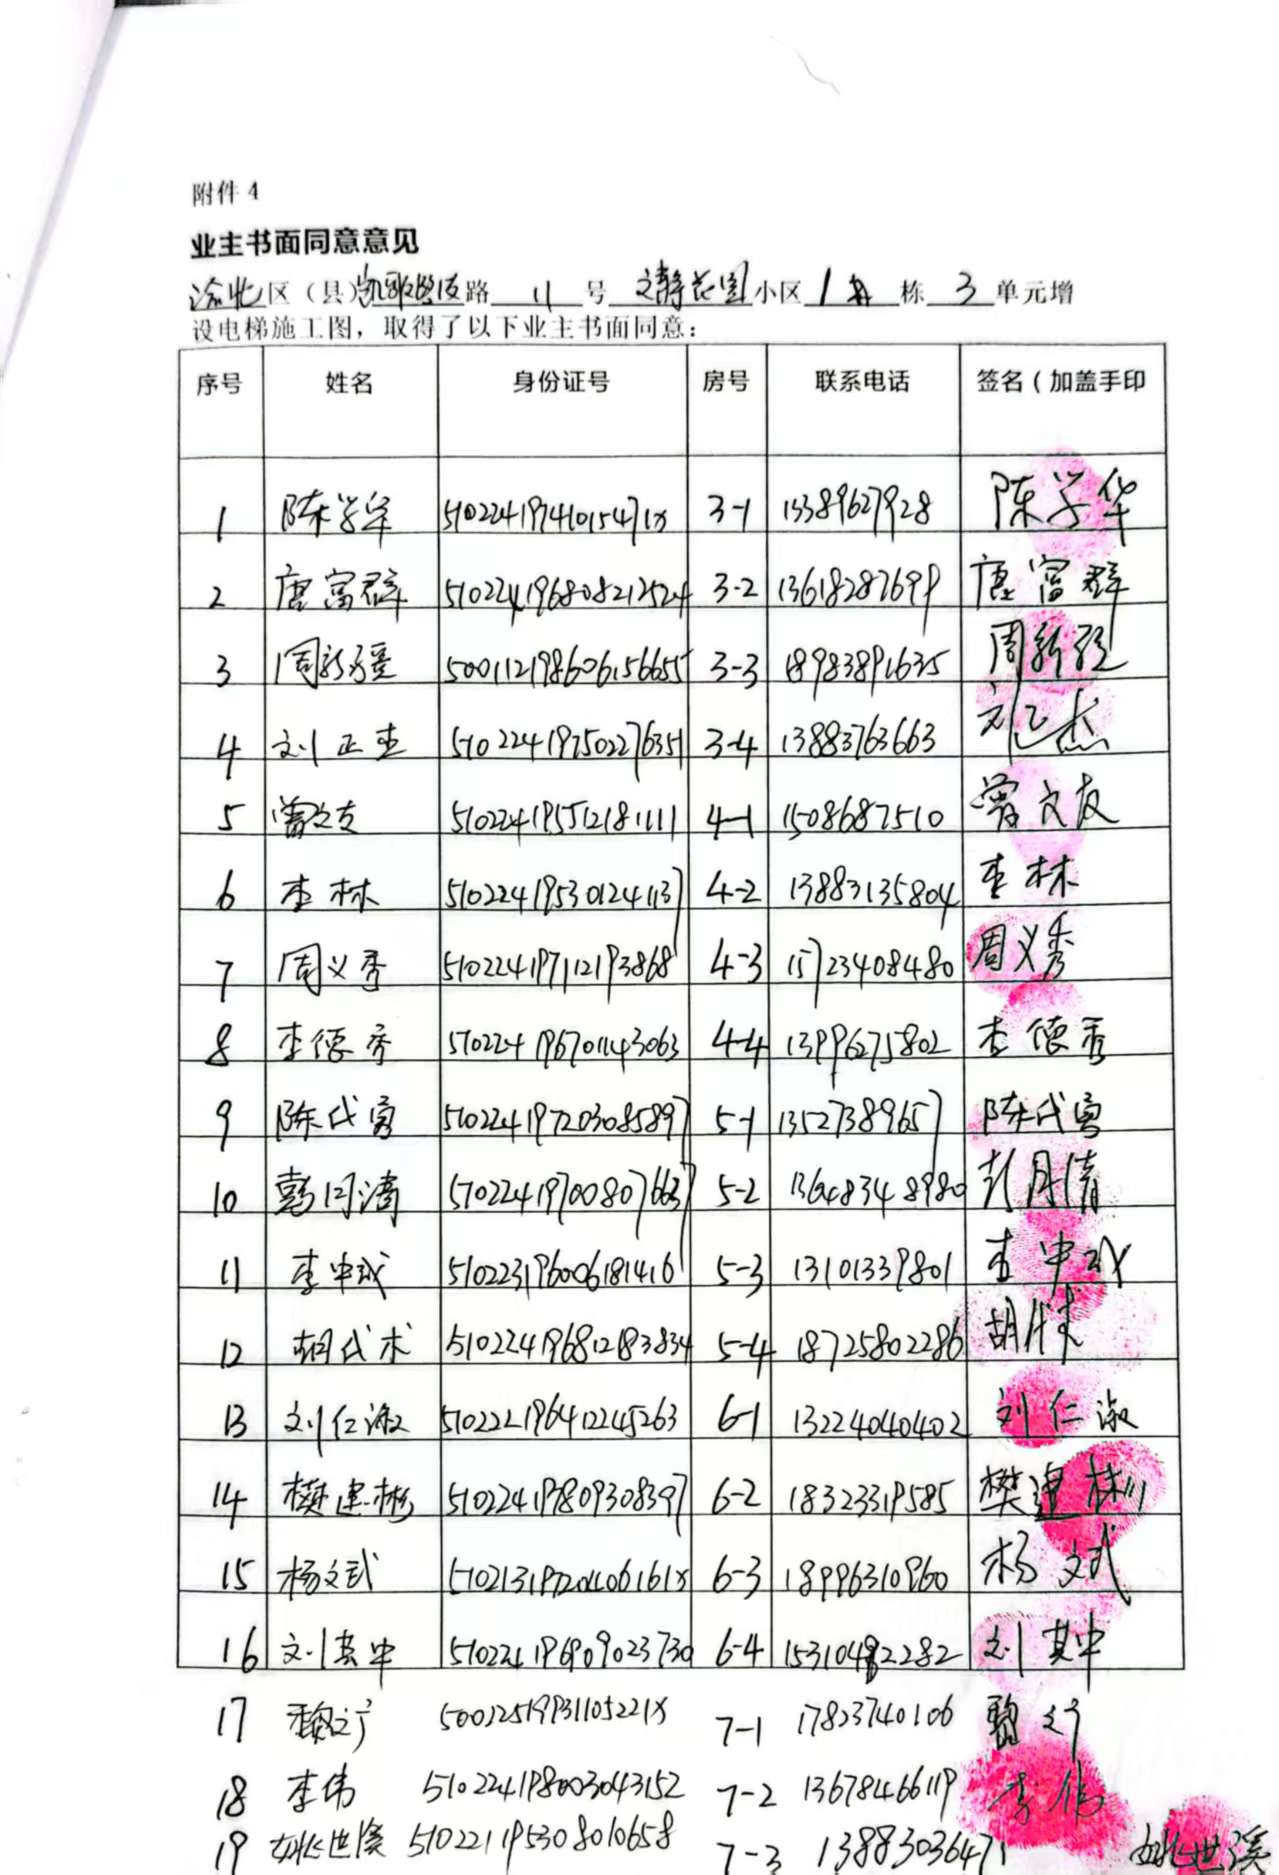 附件 4
业主书面同意意见
渝北区（县）凯歌路 11 号 文静花园小区 1 栋 3 单元增
设电梯施工图，取得了以下业主书面同意：
序号 姓名 身份证号 房号 联系电话 签名（加盖手印
1 陈学华 51022419741015471X 3-1 13389627928 陈学华
2 唐富群 510224196808212524 3-2 13618287699 唐富群
3 周新强 500112198606156655 3-3 18983891635 周新强
4 刘正杰 510224197502276351 3-4 13883763663 刘正杰
5 曾文友 510224195512181111 4-1 1508687510 曾文友
6 李林 510224195301241137 4-2 13883135804 李林
7 周义秀 510224197112193868 4-3 15723408480 周义秀
8 李德秀 510224196701143063 4-4 13996275802 李德秀
9 陈代勇 510224197203085897 5-1 13527389657 陈代勇
10 彭月清 510224197008076637 5-2 13648348980 彭月清
11 李中武 510223196006181416 5-3 13101339801 李中武
12 胡代术 510224196812183834 5-4 18725802286 胡代术
13 刘仁淑 510222196412245263 6-1 13224040402 刘仁淑
14 樊建彬 510224197809308397 6-2 18323319585 樊建彬
15 杨文武 51021319720406161X 6-3 18996310960 杨文武
16 刘其中 510224196909023730 6-4 15310482282 刘其中
17 黎文广 50022519931105221X 7-1 17823740106 黎文广
18 李伟 510224198003043152 7-2 13678466119 李伟
19 姚世溪 510221195308010658 7-3 13883036471 姚世溪